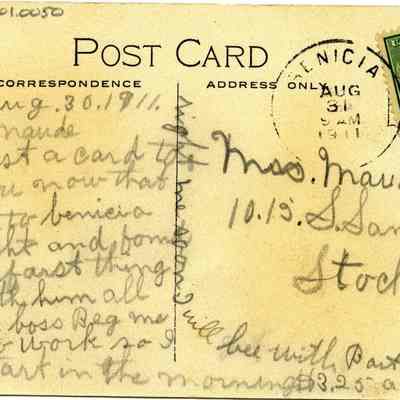 01.0050
POST CARD
CORRESPONDENCE
ADDRESS ONLY
BENICIA
AUG
31
9 AM
1911
ug. 30. 1911.
maude
st a card to
ou now that
to benicia
ght and
farst thing
him all
boss Beg me
o work so I
tart in the morning $3.25 a
right me soon I will
bee with
Mss. Mau
1015. S. San
Stoc